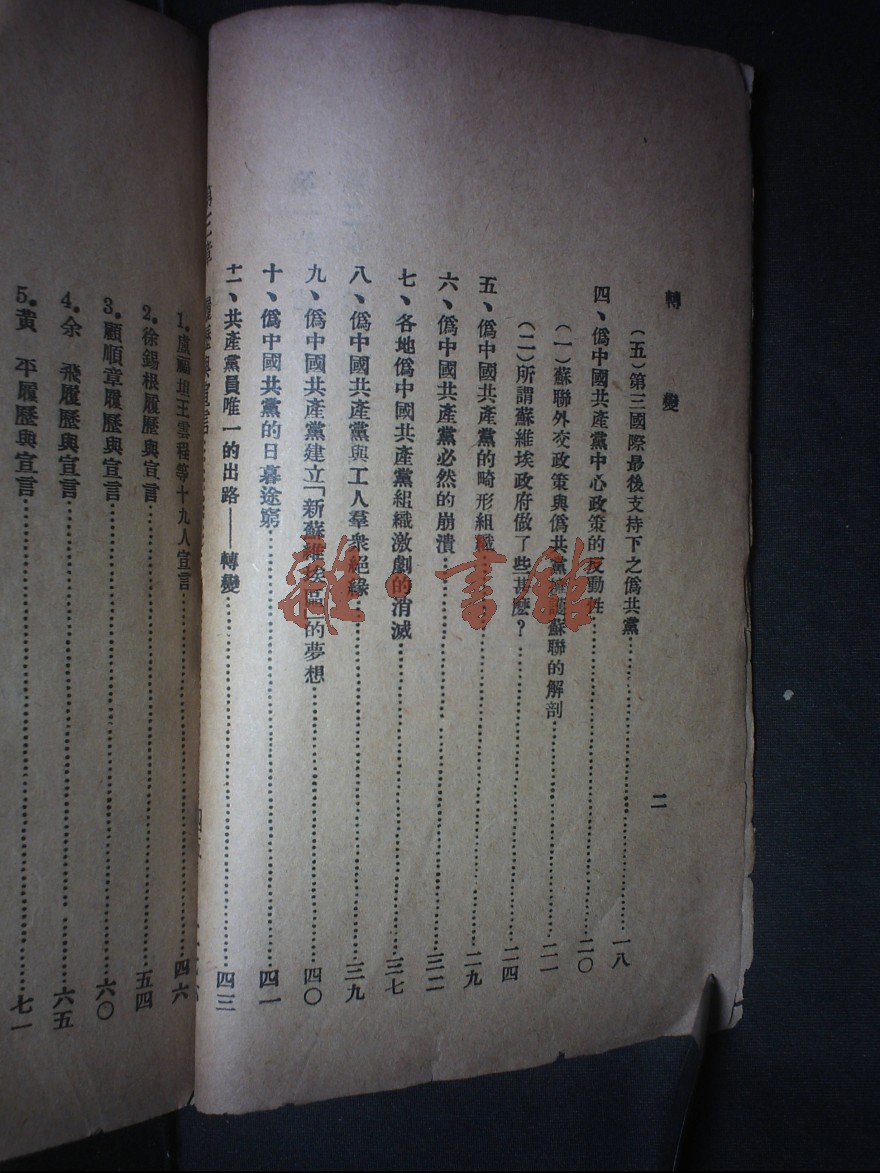 轉變
二
（五）第三國際最後支持下之僞共黨……一八
四、僞中國共產黨中心政策的反動性……二〇
（一）蘇聯外交政策與僞共黨擁護蘇聯的解剖……二一
（二）所謂蘇維埃政府做了些甚麼？……二四
五、僞中國共產黨的畸形組織……二九
六、僞中國共產黨必然的崩潰……三二
七、各地僞中國共產黨組織激劇的消滅……三七
八、僞中國共產黨與工人羣衆絕緣……三九
九、僞中國共產黨建立「新蘇維埃區」的夢想……四〇
十、僞中國共黨的日暮途窮……四一
十一、共產黨員唯一的出路——轉變……四三
履歷與宣言
1.盧福坦王雲程等十九人宣言……四六
2.徐錫根履歷與宣言……五四
3.顧順章履歷與宣言……六〇
4.余 飛履歷與宣言……六五
5.黃 平履歷與宣言……七一
雜·書館